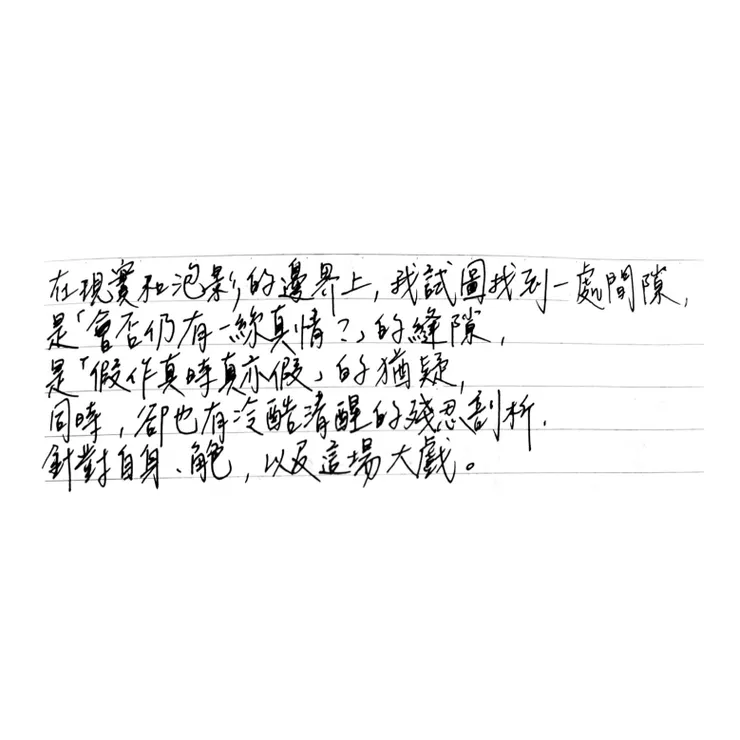 在現實和泡影的邊界上，我試圖找到一處間隙，
是「會否仍有一絲真情？」的縫隙，
是「假作真時真亦假」的猶疑，
同時，卻也有冷酷清醒的殘忍剖析，
針對自身、角色，以及這場大戲。